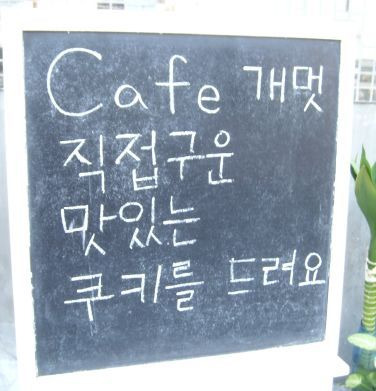 Cafe 개멋
직접구운
맛있는
쿠키를 드려요